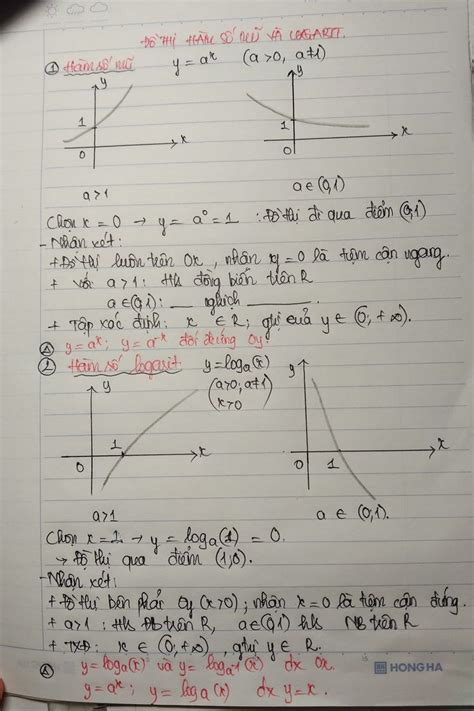 ĐỒ THỊ HÀM SỐ MŨ VÀ LOGARIT.
① Hàm số mũ y = aˣ (a>0, a≠1)
y y
1 1
0 x 0 x
a>1 a∈(0,1)
Chọn x = 0 → y = a⁰ = 1 : Đồ thị đi qua điểm (0,1)
- Nhận xét:
+ Đồ thị luôn trên Ox, nhận y=0 là tiệm cận ngang.
+ Với a>1: Hs đồng biến trên R
a∈(0,1): __ nghịch ______.
+ Tập xác định: x ∈ R; giá trị của y ∈ (0,+∞).
y=aˣ; y=a⁻ˣ đối xứng Oy
② Hàm số logarit y=logₐ(x)
(a>0, a≠1)
x>0
y y
0 1 x 0 1 x
a>1 a ∈ (0,1).
Chọn x=1 → y = logₐ(1) = 0.
→ Đồ thị qua điểm (1,0).
- Nhận xét:
+ Đồ thị bên phải Oy (x>0); nhận x=0 là tiệm cận đứng.
+ a>1 : Hs ĐB trên R, a∈(0,1) hs NB trên R
+ TXĐ: x ∈ (0,+∞), y ∈ R.
y=logₐ(x) và y=logₐ₋₁(x) đx Ox.
y=aˣ; y=logₐ(x) đx y=x.
HONG HA